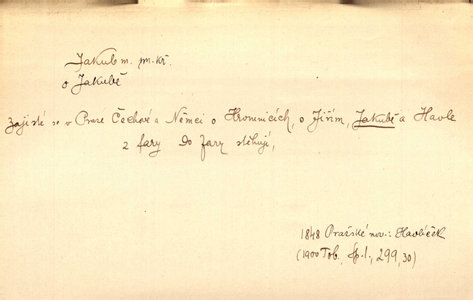 Jakub m. jm. kř.
o Jakubě
Zajisté se v Praze Čechové a Němci o Hromnicích, o Jiřím, Jakubě a Havle
z fary do fary stěhují,
1848 Pražské nov.: Havlíček
(1900 Tob. Sp. I., 299, 30)